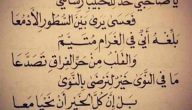 يا صاحبي خذ للحبيب رسالتي
فعسى يرى بين السطور الأدمعا
بلغه أني في الغرام متيم
والقلب من حر الفراق تصدعا
ما في النوى خير لنرضى بالنوى
بل إن كل الخير أن نحيا معا